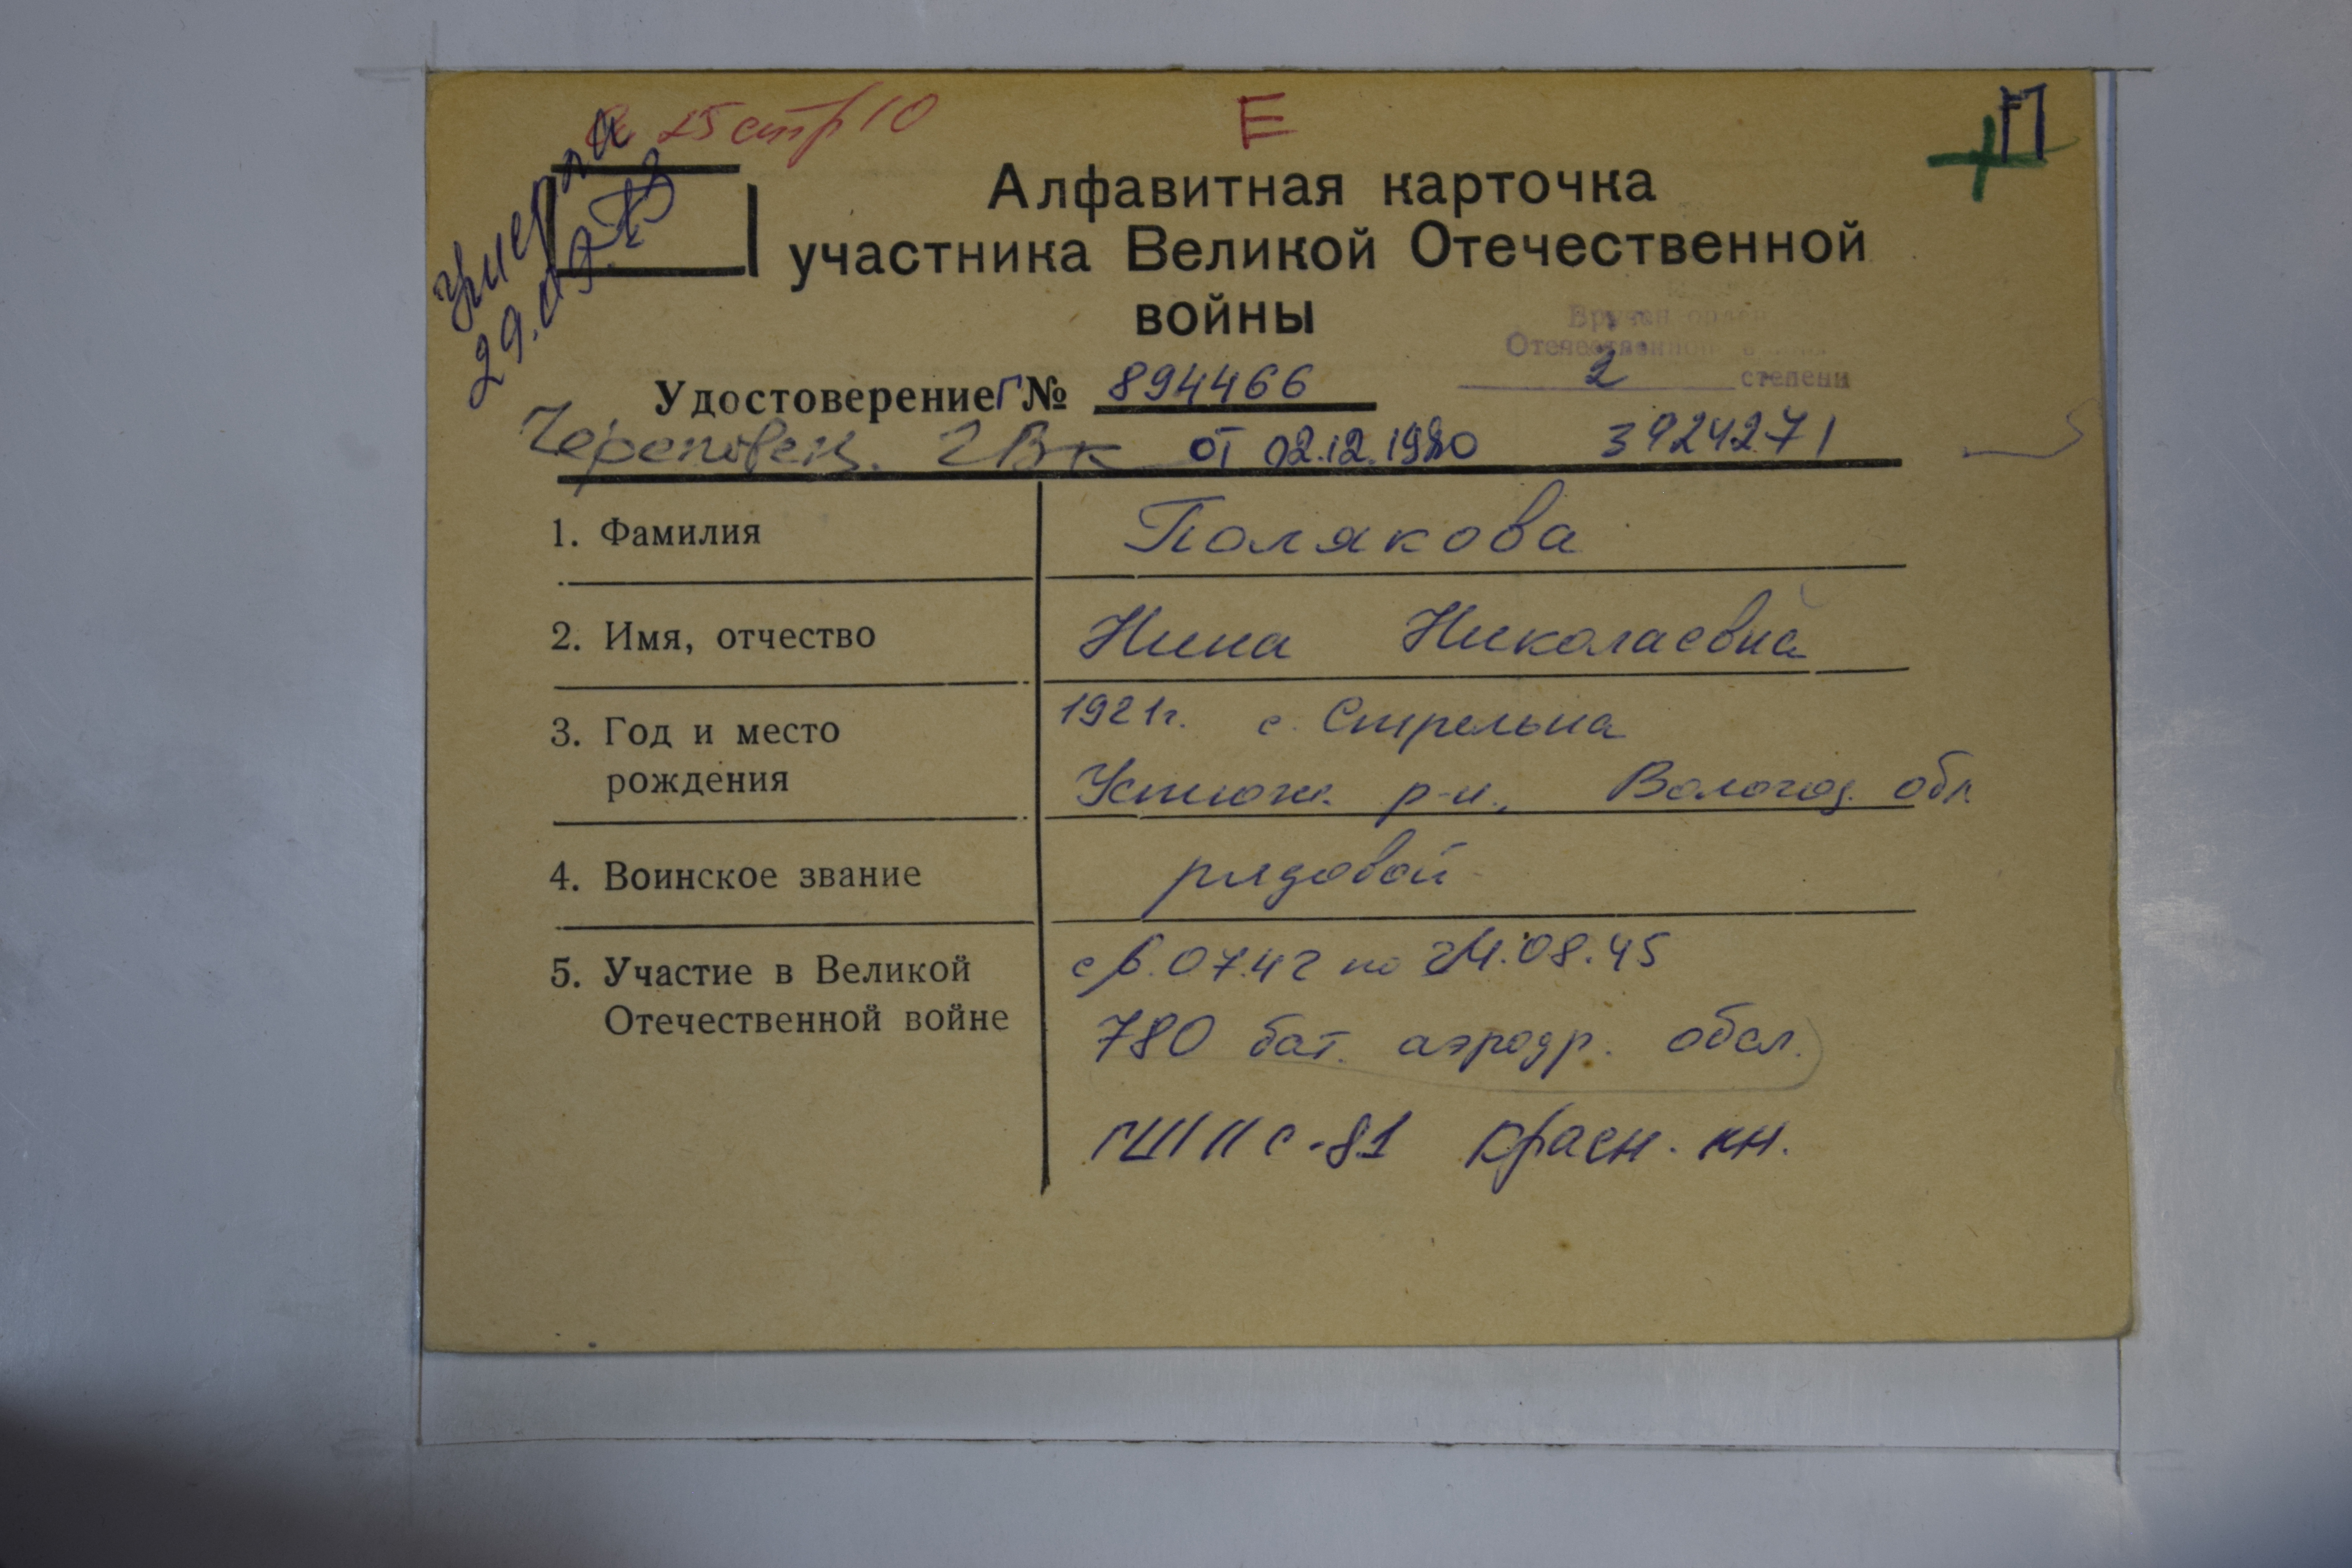 25 стр 10
Е
П
умерла
Алфавитная карточка
участника Великой Отечественной
войны
Вручен орден
Отечественной
2 степени
Удостоверение Г № 894466
Череповец. ГВК от 02.12.1980 3924271
1. Фамилия Полякова
2. Имя, отчество Нина Николаевна
3. Год и место 1921г. с. Стрельна
рождения Устюж. р-н., Вологод. обл
4. Воинское звание рядовой
5. Участие в Великой с 6.07.42 по 24.08.45
Отечественной войне 780 бат. аэродр. обсл.
ГШ II с-81 красн. кн.